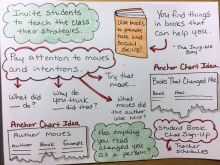 Invite students
to teach the class
their strategies.
Use books
to promote
talk and
Social
Skills!
You find things
in books that
can help you.
- "The Invisible
Boy"
Pay attention to moves
and intentions.
What
did ... do?
Why do
you think
... did that?
Try that
move...
What
mood did the
author use
here?
Anchor Chart Idea
Books That Changed Me
Book
Anchor Chart Idea
Author Moves
Author Book Example
Has anything
you read
changed you
as a person?
Student Book
Club Sign-Up
Teacher
Schedules